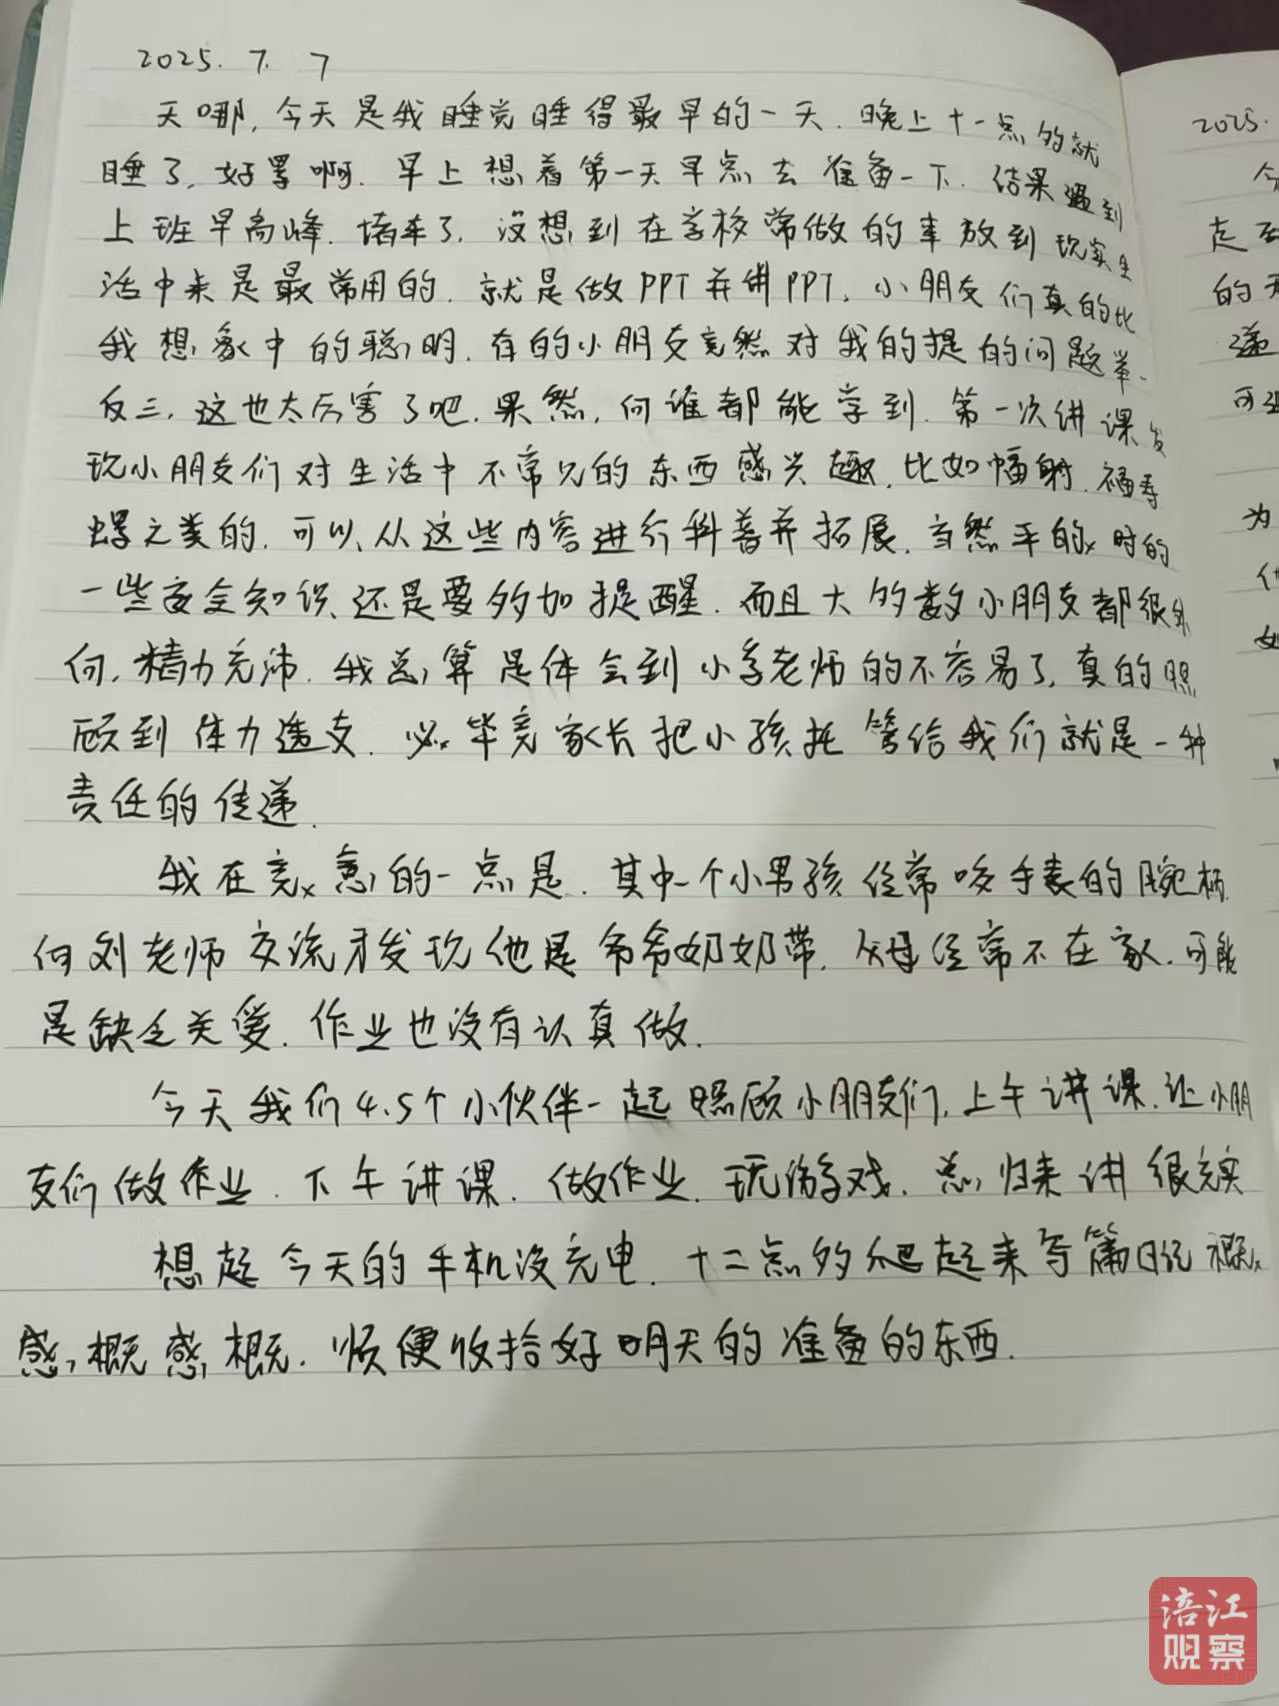 2025. 7. 7
天哪,今天是我睡觉睡得最早的一天.晚上十一点多就
睡了,好累啊.早上想着第一天早点去准备一下.结果遇到
上班早高峰.堵车了.没想到在学校常做的事放到现实生
活中来是最常用的.就是做PPT并讲PPT.小朋友们真的比
我想象中的聪明.有的小朋友竟然对我的提的问题举一
反三.这也太厉害了吧.果然,向谁都能学到.第一次讲课发
现小朋友们对生活中不常见的东西感兴趣.比如辐射.福寿
螺之类的.可以从这些内容进行科普并拓展.当然平的时的
一些安全知识还是要多加提醒.而且大多数小朋友都很外
向.精力充沛.我总算是体会到小学老师的不容易了.真的照
顾到体力透支.毕竟家长把小孩托管给我们就是一种
责任的传递.
我在意的一点是.其中一个小男孩经常咬手表的腕柄.
向刘老师交流才发现他是爷爷奶奶带.父母经常不在家.可能
是缺乏关爱.作业也没有认真做.
今天我们4.5个小伙伴一起照顾小朋友们,上午讲课.让小朋
友们做作业.下午讲课.做作业.玩游戏.总归来讲很充实
想起今天的手机没充电.十二点多爬起来写篇日记
感概感概.顺便收拾好明天的准备的东西.
2025.
今
走
的
递
可
为
涪江
观察